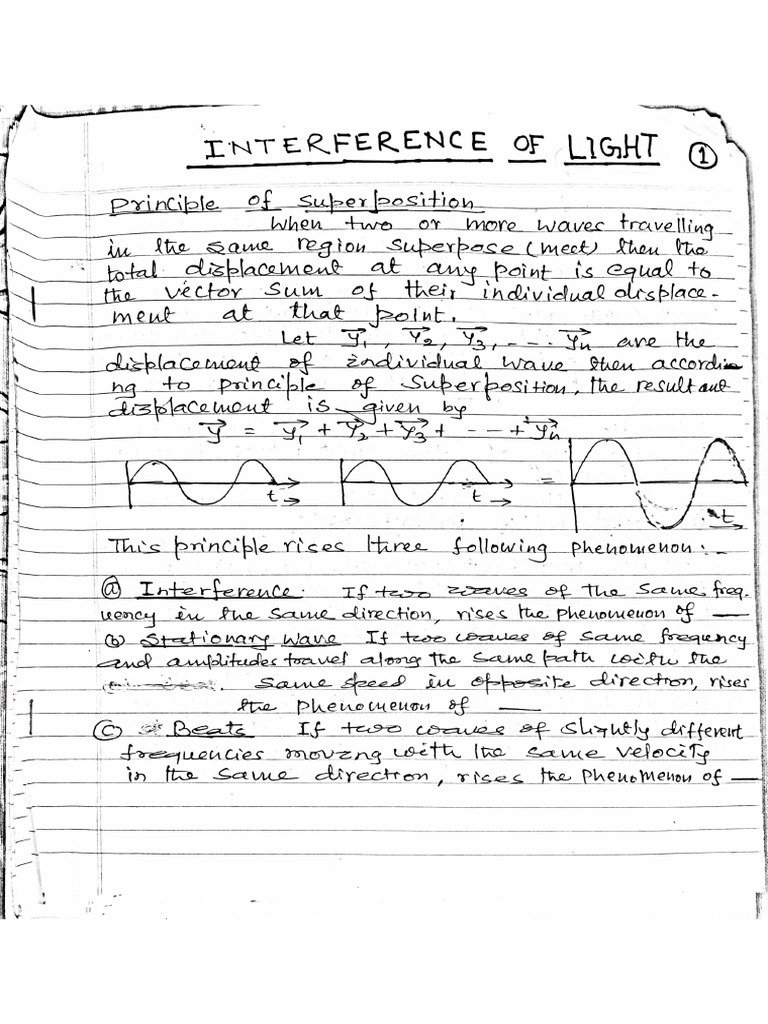 INTERFERENCE OF LIGHT ①
Principle of superposition
When two or more waves travelling
in the same region superpose (meet) then the
total displacement at any point is equal to
the vector sum of their individual displace-
ment at that point.
Let y₁, y₂, y₃, - - - yn are the
displacement of individual wave then accordi
ng to principle of superposition, the resultant
displacement is given by
y = y₁ + y₂ + y₃ + - - - + yn
t → t → = t
This principle rises three following phenomenon:-
ⓐ Interference: If two waves of the same freq-
uency in the same direction, rises the phenomenon of —
ⓑ Stationary wave If two waves of same frequency
and amplitudes travel along the same path with the
same speed in opposite direction, rises
the phenomenon of —
ⓒ Beats If two waves of slightly different
frequencies moving with the same velocity
in the same direction, rises the phenomenon of —